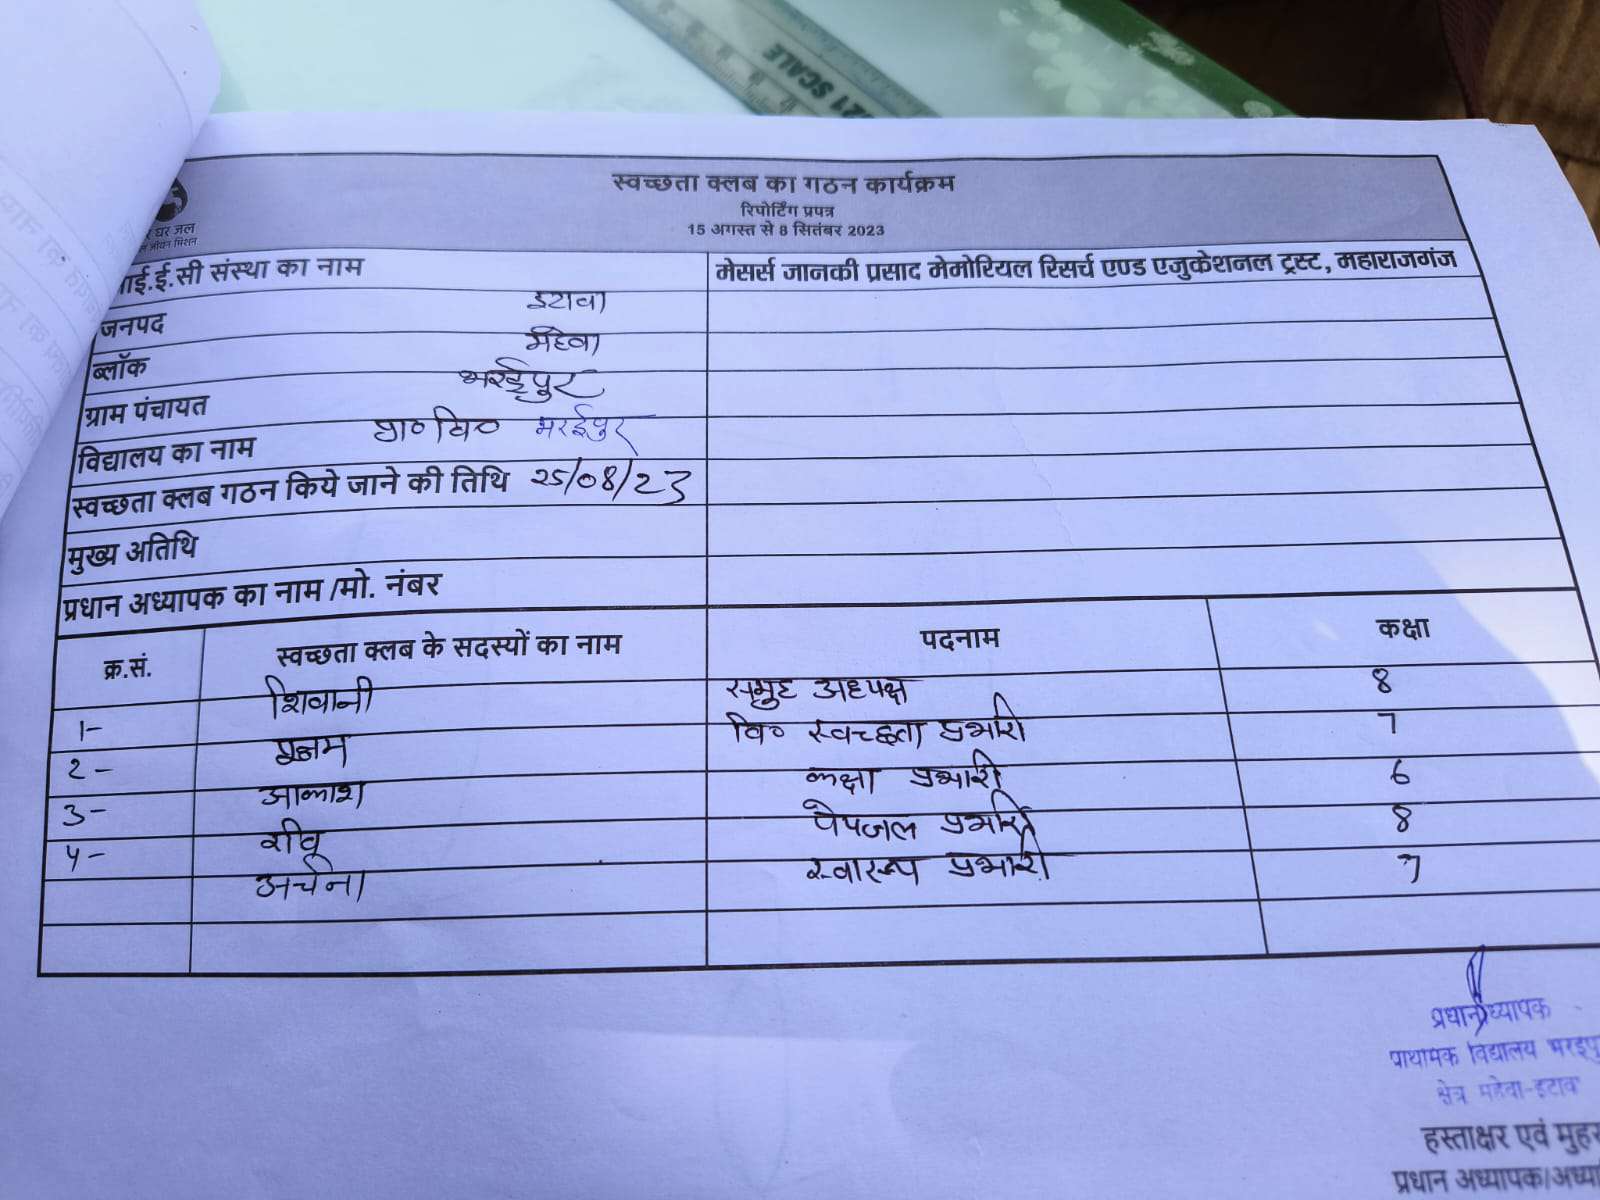 ZT SCALE
स्वच्छता क्लब का गठन कार्यक्रम
रिपोर्टिंग प्रपत्र
15 अगस्त से 8 सितंबर 2023
र घर जल
जीवन मिशन
आई.ई.सी संस्था का नाम मेसर्स जानकी प्रसाद मेमोरियल रिसर्च एण्ड एजुकेशनल ट्रस्ट, महाराजगंज
जनपद इटावा
ब्लॉक महेवा
ग्राम पंचायत भरईपुर
विद्यालय का नाम प्रा० वि० भरईपुर
स्वच्छता क्लब गठन किये जाने की तिथि 25/08/23
मुख्य अतिथि
प्रधान अध्यापक का नाम /मो. नंबर
क्र.सं. स्वच्छता क्लब के सदस्यों का नाम पदनाम कक्षा
1- शिवानी समुह अध्यक्ष 8
2- वि० स्वच्छता प्रभारी 7
3- आकाश कक्षा प्रभारी 6
4- पेयजल प्रभारी 8
अर्चना प्रभारी 7
प्रधानाध्यापक
प्राथमिक विद्यालय भरईपु
क्षेत्र महेवा-इटावा
हस्ताक्षर एवं मुह
प्रधान अध्यापक/अध्या